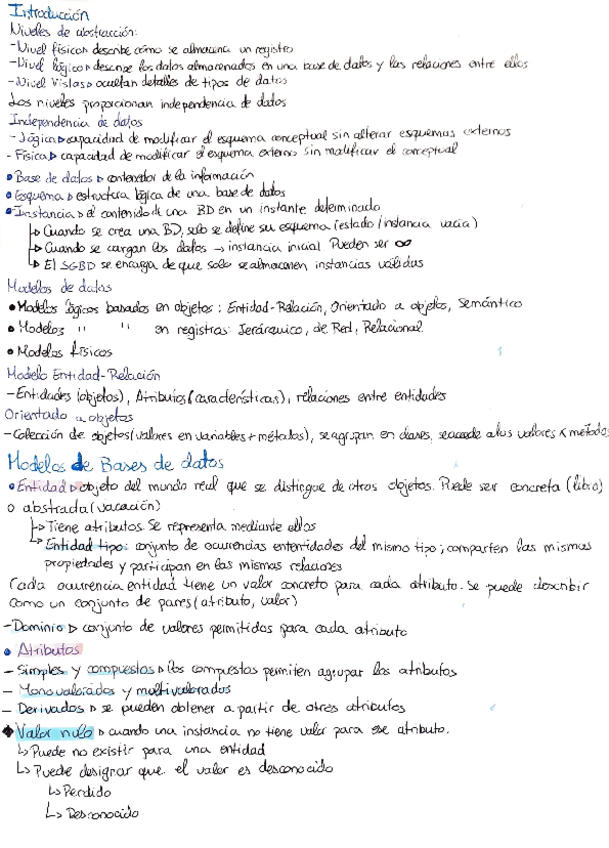 Introducción
Niveles de abstracción:
-Nivel físico▷ describe cómo se almacena un registro
-Nivel lógico▷ describe los datos almacenados en una base de datos y las relaciones entre ellos
-Nivel Vistas▷ ocultan detalles de tipos de datos
Los niveles proporcionan independencia de datos
Independencia de datos
- Lógica▷ capacidad de modificar el esquema conceptual sin alterar esquemas externos
- Física▷ capacidad de modificar el esquema externo sin modificar el conceptual
• Base de datos ▷ contenedor de la información
• Esquema ▷ estructura lógica de una base de datos
•Instancia ▷ el contenido de una BD en un instante determinado
↳ Cuando se crea una BD, solo se define su esquema (estado/instancia vacía)
↳ Cuando se cargan los datos → instancia inicial. Pueden ser ∞
↳ El SGBD se encarga de que solo se almacenen instancias válidas
Modelos de datos
• Modelos lógicos basados en objetos: Entidad-Relación, Orientado a objetos, Semántico
• Modelos " " en registros: Jerárquico, de Red, Relacional.
• Modelos físicos
Modelo Entidad-Relación
-Entidades (objetos), Atributos (características), relaciones entre entidades
Orientado a objetos
-Colección de objetos (valores en variables + métodos), se agrupan en clases, se accede a los valores x métodos
Modelos de Bases de datos
• Entidad ▷ objeto del mundo real que se distingue de otros objetos. Puede ser concreta (libro)
o abstracta (vacación)
↳ Tiene atributos. Se representa mediante ellos
↳ Entidad tipo: conjunto de ocurrencias entidades del mismo tipo; comparten las mismas
propiedades y participan en las mismas relaciones
Cada ocurrencia entidad tiene un valor concreto para cada atributo. Se puede describir
como un conjunto de pares (atributo, valor)
-Dominio ▷ conjunto de valores permitidos para cada atributo
• Atributos
- Simples y compuestos ▷ los compuestos permiten agrupar los atributos
- Monovalorados y multivalorados
- Derivados ▷ se pueden obtener a partir de otros atributos
◆ Valor nulo ▷ cuando una instancia no tiene valor para ese atributo.
↳ Puede no existir para una entidad
↳ Puede designar que el valor es desconocido
↳ Perdido
↳ Desconocido